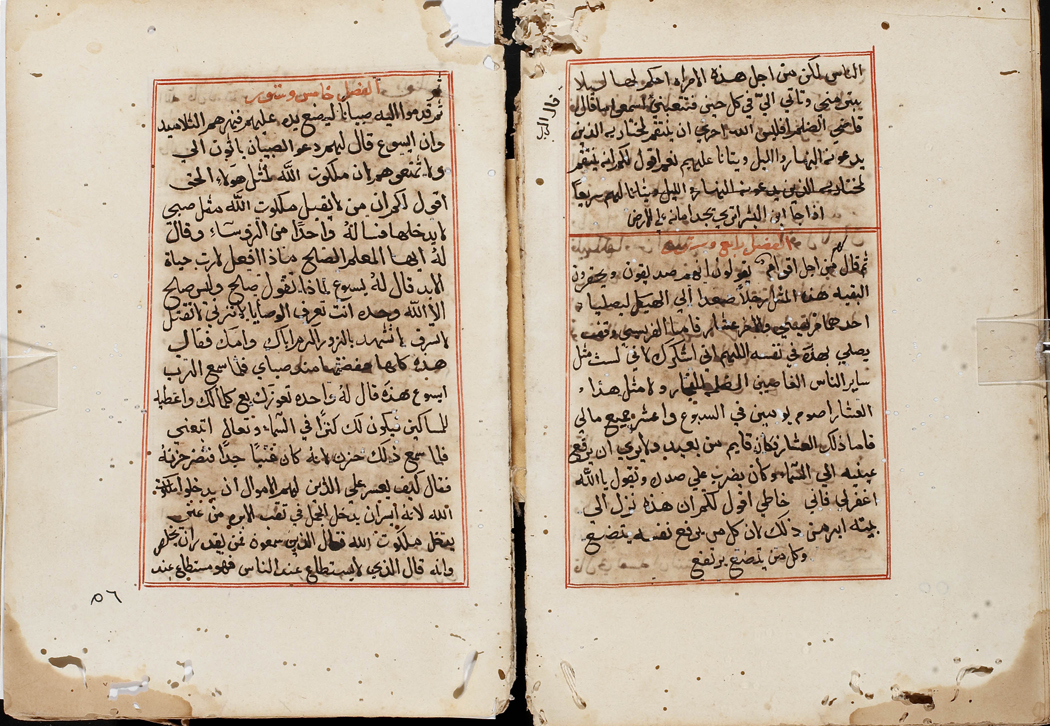 الناس لكن من اجل هذه الامراه احكم لها ليلا
قال الرب
يبتي مني وتاتي الي في كل حين فتتعبني اسمعوا ما قال
قاضي الظلم افليس الله احري ان ينتقم لمختاريه الذين
يدعونه النهار والليل ويتانا عليهم نعم اقول لكم انه ينتقم
لمختاريه الذين يدعونه النهار و الليل ويتانا لهم سريعا
اذا جا ابن البشر اتري يجد امانه علي الارض
الفصل رابع وستون
ثم قال من اجل اقوام يقولون انهم صديقون ويحقرون
البقيه هذا المثل رجلان صعدا الي الهيكل ليصليا
احدهما فريسي والاخر عشار فاما الفريسي وقف
يصلي بهذه في نفسه اللهم اني اشكرك لاني لست مثل
ساير الناس الغاصبين الظلمه الفجار ولا مثل هذا
العشار اصوم يومين في السبوع واعشر جميع مالي
فاما ذلك العشار فكان قايم من بعيد ولا يري ان يرفع
عينيه الي السماء وكان يضرب علي صدره ويقول يا الله
اغفر لي فاني خاطي اقول لكم ان هذا نزل الي
بيته ابر من ذلك لان كل من يرفع نفسه يتضع
وكل من يتضع يرتفع
الفصل خامس وستون
ثم قدموا اليه صبيانا ليضع يده عليهم فنهرهم التلاميد
وان ايسوع قال لهم دعوا الصبيان ياتون الي
ولا تمنعوهم ان ملكوت الله لمثل هولاء الحق
اقول لكم ان من لا يقبل ملكوت الله مثل صبي
لا يدخلها فساله واحدا من الروساء وقال
له ايها المعلم الصالح ماذا افعل لارت حياة
الابد قال له يسوع لماذا تقول صالح وليس صالح
الا الله وحده انت تعرف الوصايا لا تزني لا تقتل
لا تسرق لا تشهد بالزور اكرم اباك وامك فقال
هذه كلها حفضتها منذ صباي فلما سمع الرب
ايسوع هذه قال له واحده تعوزك بع كلما لك واعطيه
للمساكين فيكون لك كنزا في السماء وتعالي اتبعني
فلما سمع ذلك حزن لانه كان غنيا جدا فنضر حزنه
فقال كيف يعسر علي الذين لهم الاموال ان يدخلوا ملكوة
الله لانه ايسر ان يدخل الجمل في تقب الابره من غني
يدخل ملكوت الله فقال الذين سمعوه فمن يقدر ان يخلص
وانه قال الذي لا يستطاع عند الناس فهو مستطاع عند
٥٦